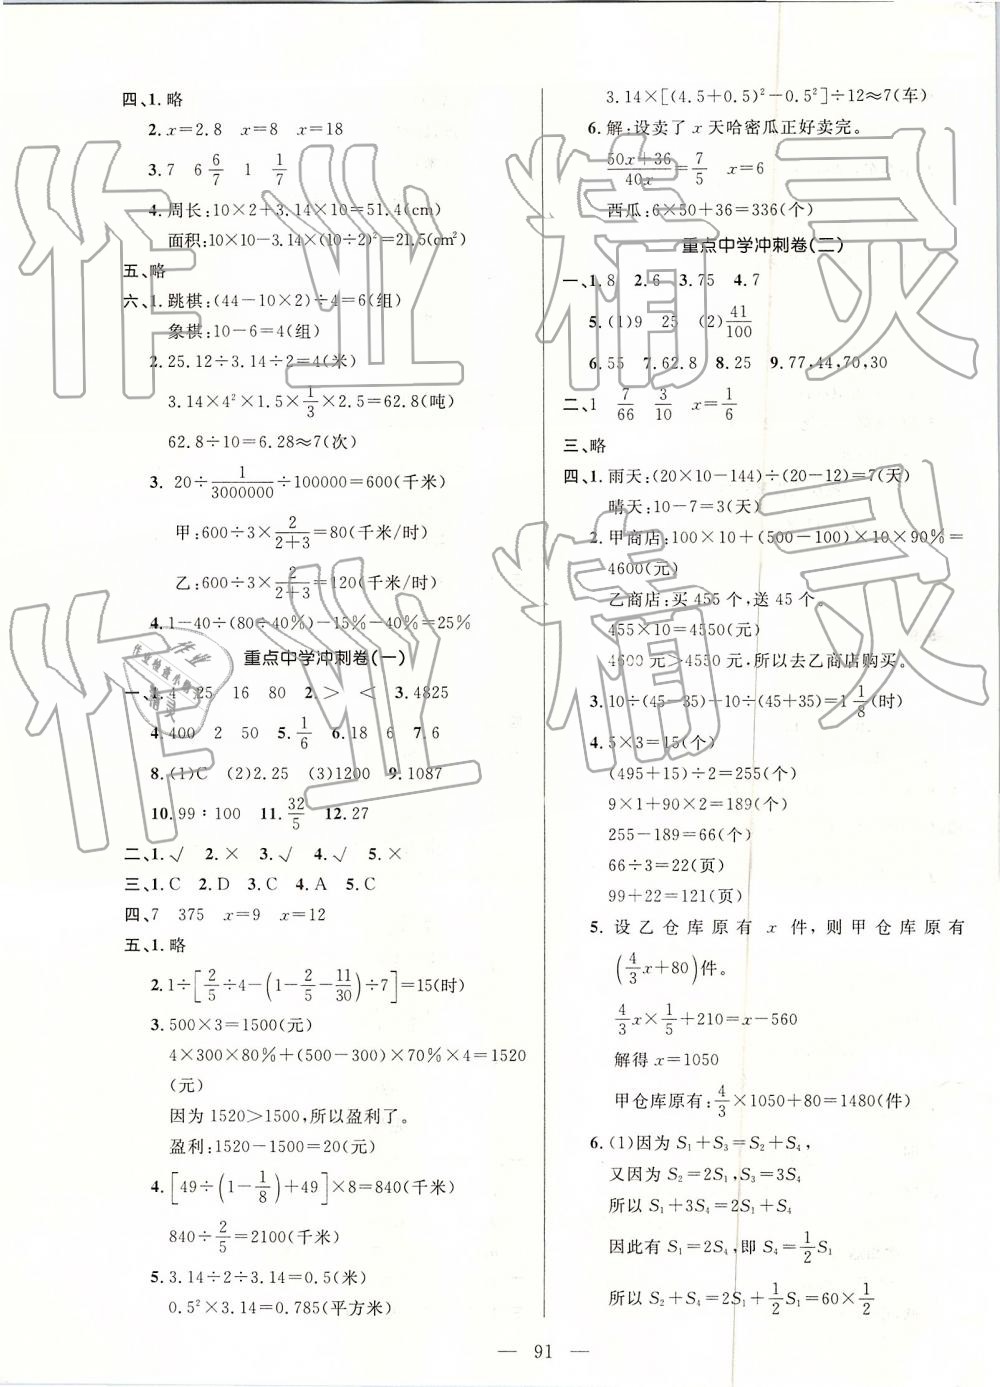 四、1. 略
2. x=2.8 x=8 x=18
3. 7 6 6/7 1 1/7
4. 周长:10×2+3.14×10=51.4(cm)
面积:10×10-3.14×(10÷2)²=21.5(cm²)
五、略
六、1. 跳棋:(44-10×2)÷4=6(组)
象棋:10-6=4(组)
2. 25.12÷3.14÷2=4(米)
3.14×4²×1.5×1/3×2.5=62.8(吨)
62.8÷10=6.28≈7(次)
3. 20÷1/3000000÷100000=600(千米)
甲:600÷3×2/(2+3)=80(千米/时)
乙:600÷3×2/(2+3)=120(千米/时)
4. 1-40÷(80÷40%)-15%-40%=25%
重点中学冲刺卷(一)
一、1. 4 25 16 80 2. > < 3. 4825
4. 400 2 50 5. 1/6 6. 18 6 7. 6
8. (1)C (2)2.25 (3)1200 9. 1087
10. 99∶100 11. 32/5 12. 27
二、1. √ 2. × 3. √ 4. √ 5. ×
三、1. C 2. D 3. C 4. A 5. C
四、7 375 x=9 x=12
五、1. 略
2. 1÷[2/5÷4-(1-2/5-11/30)÷7]=15(时)
3. 500×3=1500(元)
4×300×80%+(500-300)×70%×4=1520
(元)
因为1520>1500,所以盈利了。
盈利:1520-1500=20(元)
4. [49÷(1-1/8)+49]×8=840(千米)
840÷2/5=2100(千米)
5. 3.14÷2÷3.14=0.5(米)
0.5²×3.14=0.785(平方米)
3.14×[(4.5+0.5)²-0.5²]÷12≈7(车)
6. 解:设卖了x天哈密瓜正好卖完。
(50x+36)/40x=7/5 x=6
西瓜:6×50+36=336(个)
重点中学冲刺卷(二)
一、1. 8 2. 6 3. 75 4. 7
5. (1)9 25 (2)41/100
6. 55 7. 62.8 8. 25 9. 77,44,70,30
二、1 7/66 3/10 x=1/6
三、略
四、1. 雨天:(20×10-144)÷(20-12)=7(天)
晴天:10-7=3(天)
2. 甲商店:100×10+(500-100)×10×90%=
4600(元)
乙商店:买455个,送45个。
455×10=4550(元)
4600元>4550元,所以去乙商店购买。
3. 10÷(45-35)+10÷(45+35)=1 1/8(时)
4. 5×3=15(个)
(495+15)÷2=255(个)
9×1+90×2=189(个)
255-189=66(个)
66÷3=22(页)
99+22=121(页)
5. 设乙仓库原有x件,则甲仓库原有
(4/3x+80)件。
4/3x×1/5+210=x-560
解得x=1050
甲仓库原有:4/3×1050+80=1480(件)
6. (1)因为S₁+S₃=S₂+S₄,
又因为S₂=2S₁,S₃=3S₄
所以S₁+3S₄=2S₁+S₄
因此有S₁=2S₄,即S₄=1/2S₁
所以S₂+S₄=2S₁+1/2S₁=60×1/2
— 91 —
作业精灵
作业精灵